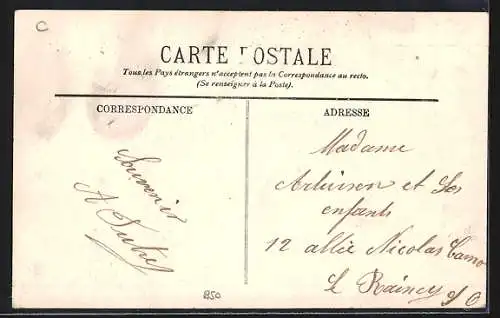 C
CARTE POSTALE
Tous les Pays étrangers n'acceptent pas la Correspondance au recto.
(Se renseigner à la Poste).
CORRESPONDANCE
Souvenir
A
ADRESSE
Madame
et Ses
enfants
12 allée Nicolas
Le Raincy
S/O
850